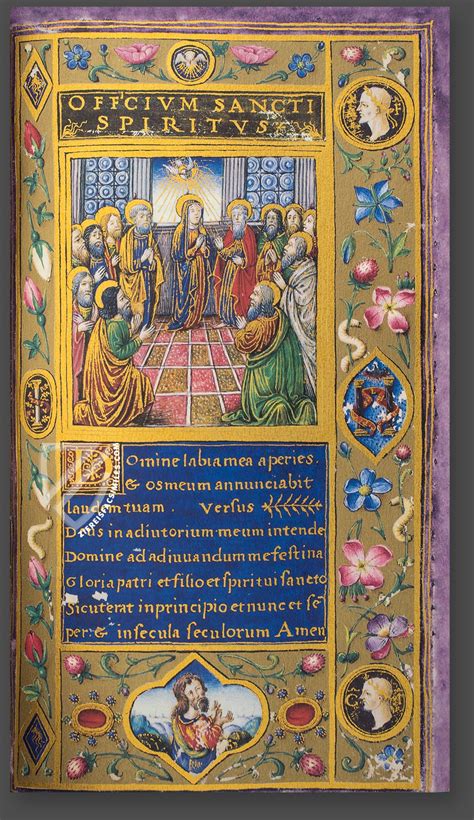 OFFCIVM SANCTI
SPIRITVS
Domine labia mea aperies.
& os meum annunciabit
laudem tuam. Versus
Deus in adiutorium meum intende
Domine ad adiuvandum me festina
Gloria patri et filio et spiritui sancto
Sicut erat in principio et nunc et sē
per: & in secula seculorum Amen
ZIEREISFACSIMILES.COM